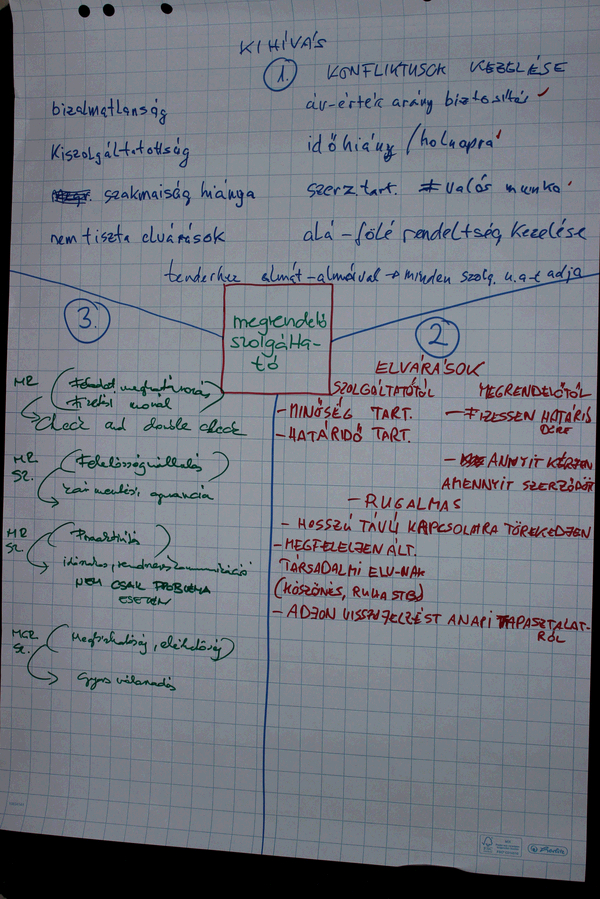 KIHÍVÁS
1. KONFLIKTUSOK KEZELÉSE
bizalmatlanság
Kiszolgáltatottság
szakmaiság hiánya
nem tiszta elvárások
ár-érték arány biztosítás
időhiány / holnapra
szerz. tart. ≠ valós munka
alá-fölé rendeltség kezelése
tenderhez almát-almával → minden szolg. u.a-t adja
megrendelő
szolgálta-
tó
2
ELVÁRÁSOK
SZOLGÁLTATÓTÓL
- MINŐSÉG TART.
- HATÁRIDŐ TART.
MEGRENDELŐTŐL
- FIZESSEN HATÁRIDŐRE
- ANNYIT KÉRJEN
AMENNYIT SZERZŐDÖTT
- RUGALMAS
- HOSSZÚ TÁVÚ KAPCSOLATRA TÖREKEDJEN
- MEGFELELJEN ÁLT.
TÁRSADALMI ELV.-NAK
(KÖSZÖNÉS, RUHA STB)
- ADJON VISSZAJELZÉST A NAPI TAPASZTALAT-
RÓL
3.
MR
Feladat meghatározás
Fizetési morál
Check and double check
MR
SZ.
Felelősségvállalás
MR
SZ
Proaktivitás
NEM CSAK PROBLÉMA
ESETÉN
MGR
SZ.
Megbízhatóság, elérhetőség
Gyors válaszadás